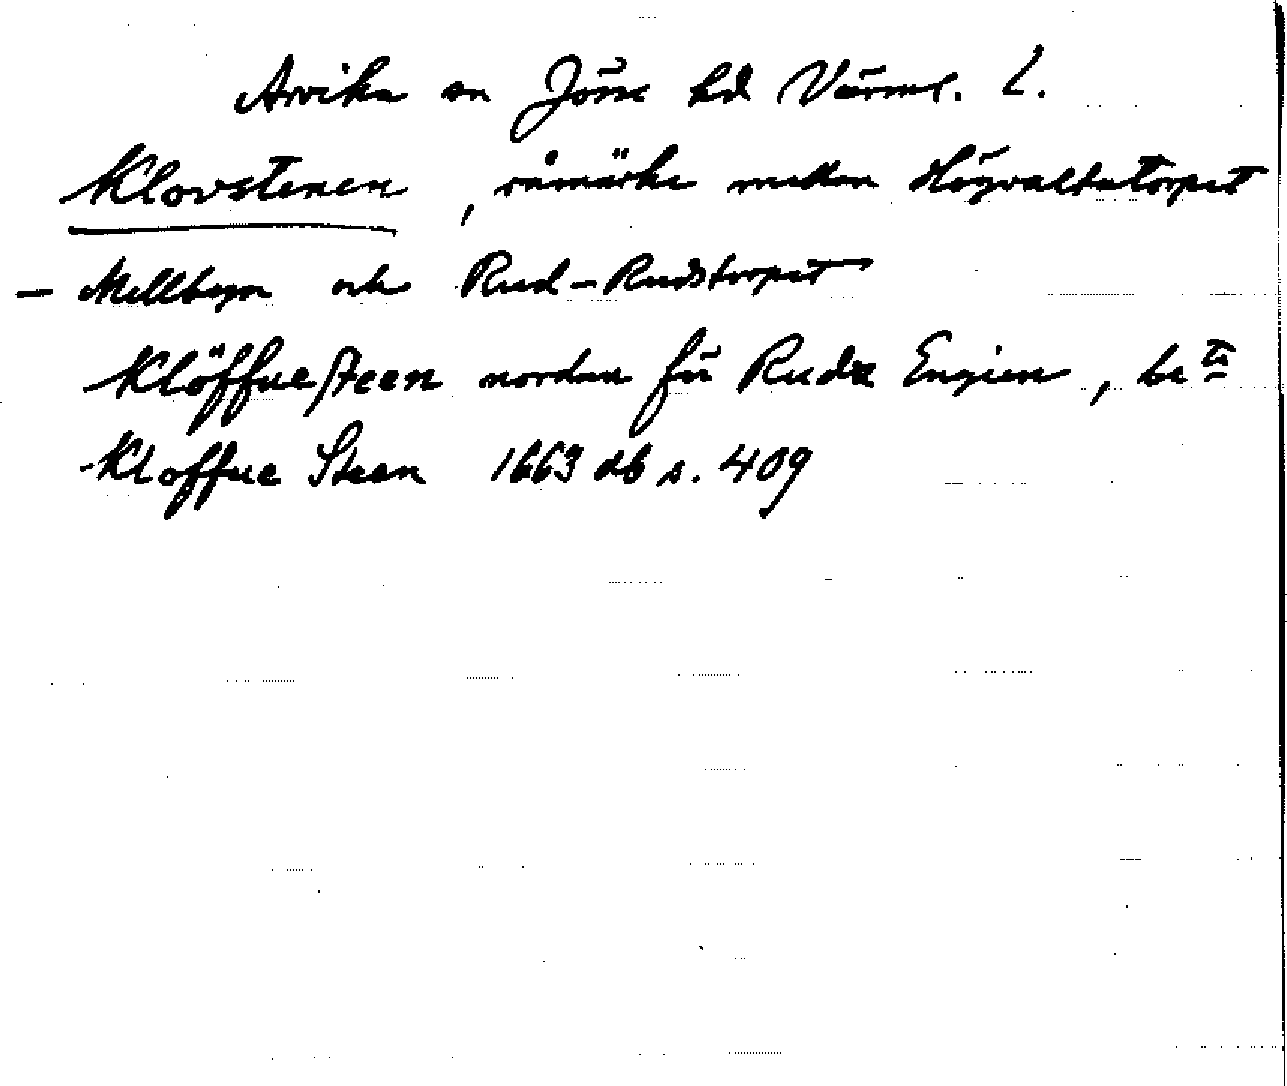 Arvika sn Jösse hd Värml. L.
Klovstenen, råmärke mellan Högvaltatorpet
— Mellbyn och Rud-Rudstorpet
Klöffue steen nordan för Rudz Engien, be
Kloffue Steen 1663 db s. 409